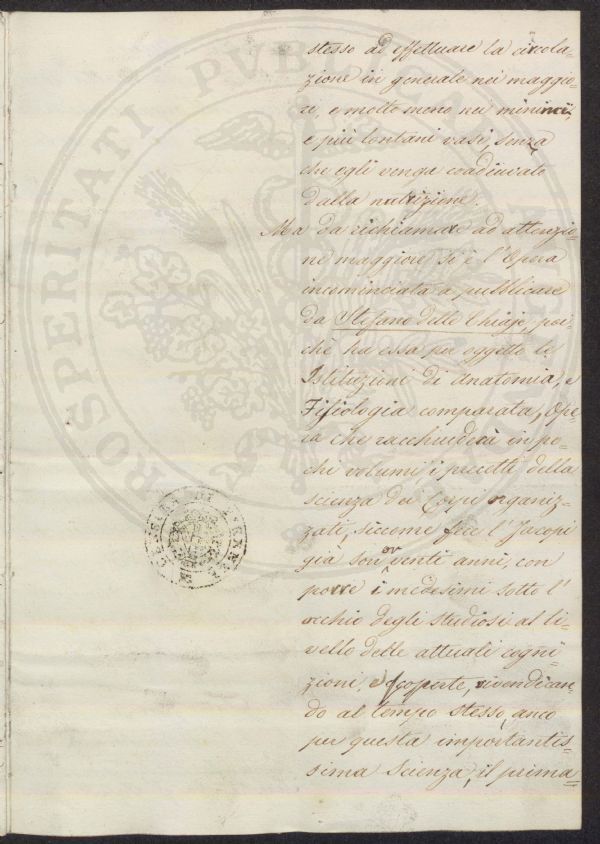 stesso ad effettuare la circola-
zione in generale nei maggio-
ri, e molto meno nei minimi,
e più lontani vasi, senza
che egli venga coadiuvato
dalla nutrizione.
Ma da richiamare ad attenzio-
ne maggiore si è l'Opera
incominciata a pubblicare
da Stefano delle Chiaje, poi-
chè ha essa per oggetto le
Istituzioni di Anatomia, e
Fisiologia comparata, Ope-
ra che racchiuderà in po-
chi volumi, i precetti della
scienza dei Corpi organiz-
zati, siccome fece l'Jacopi
già son or venti anni, con
porre i medesimi sotto l'
occhio degli studiosi al li-
vello delle attuali cogni-
zioni, e scoperte, rivendican-
do al tempo stesso, anco
per questa importantis-
sima Scienza, il prima-
PROSPERITATI PUBLICAE